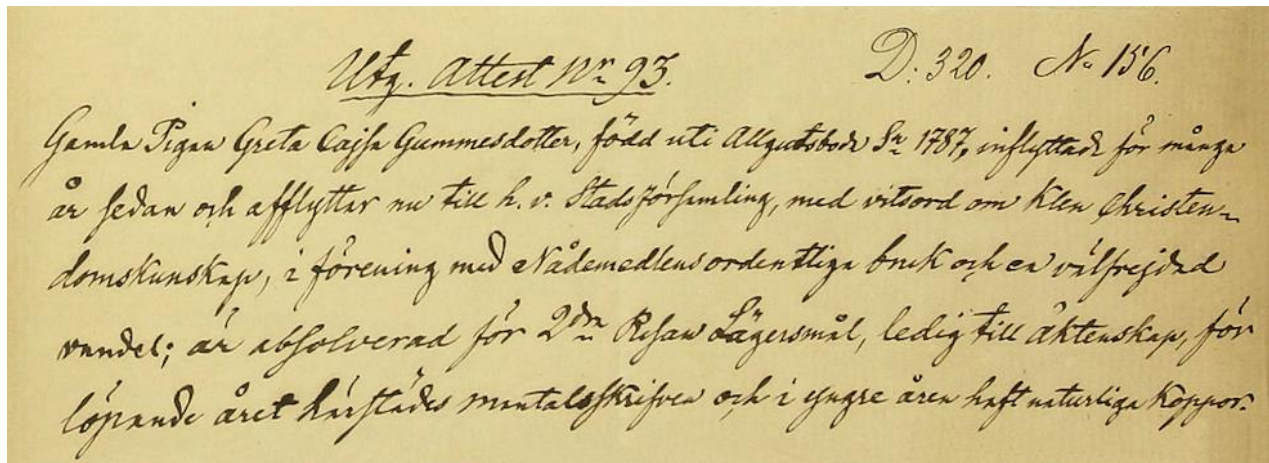 Utg. Attest Nr 93. D: 320. No 156.
Gamla Pigan Greta Cajsa Gummesdotter, född uti Algutsboda Sn 1787, inflyttade för många
år sedan och afflyttar nu till h. v. Stadsförsamling, med vitsord om klen Christen-
domskunskap, i förening med Nådemedlens ordentliga bruk och en välfrejdad
vandel; är absolverad för 2dra Resan Lägersmål, ledig till äktenskap, för
löpande året härstädes mantalsskrifven och i yngre åren haft naturliga koppor.